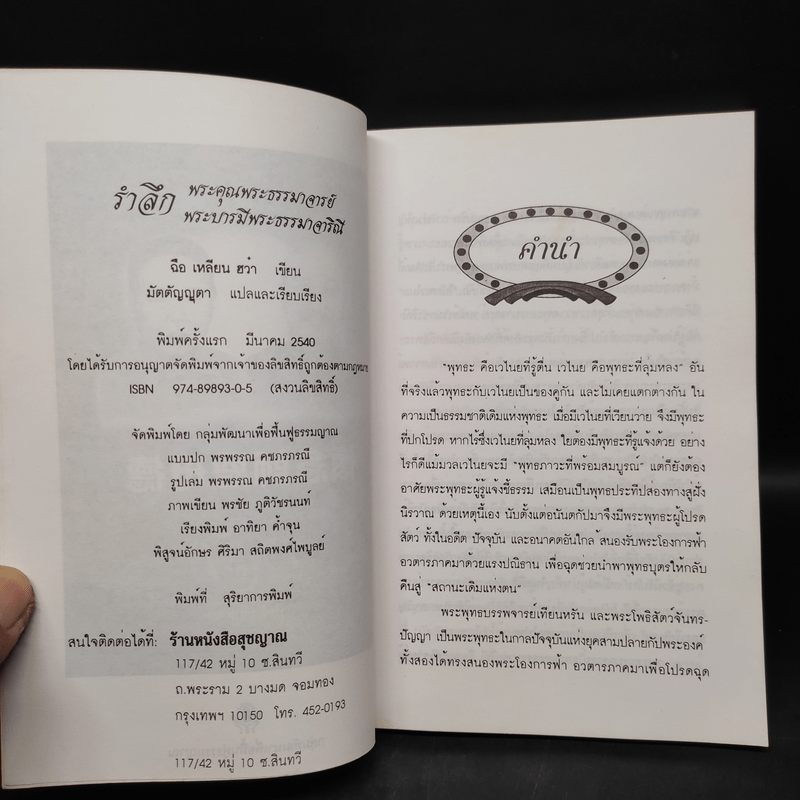 รำลึก พระคุณพระธรรมาจารย์
พระบารมีพระธรรมจาริณี
ฉือ เหลียน ฮว๋า เขียน
มัตตัญญุตา แปลและเรียบเรียง
พิมพ์ครั้งแรก มีนาคม 2540
โดยได้รับการอนุญาตจัดพิมพ์จากเจ้าของลิขสิทธิ์ถูกต้องตามกฎหมาย
ISBN 974-89893-0-5 (สงวนลิขสิทธิ์)
จัดพิมพ์โดย กลุ่มพัฒนาเพื่อฟื้นฟูธรรมญาณ
แบบปก พรพรรณ คชภรภรณี
รูปเล่ม พรพรรณ คชภรภรณี
ภาพเขียน พรชัย ภูติวัชรนนท์
เรียงพิมพ์ อาทิยา ค้ำจุน
พิสูจน์อักษร ศิริมา สถิตพงศ์ไพบูลย์
พิมพ์ที่ สุริยาการพิมพ์
สนใจติดต่อได้ที่: ร้านหนังสือสุชญาณ
117/42 หมู่ 10 ซ.สินทวี
ถ.พระราม 2 บางมด จอมทอง
กรุงเทพฯ 10150 โทร. 452-0193
117/42 หมู่ 10 ซ.สินทวี
คำนำ
"พุทธะ คือเวไนยที่รู้ตื่น เวไนย คือพุทธะที่ลุ่มหลง" อัน
ที่จริงแล้วพุทธะกับเวไนยเป็นของคู่กัน และไม่เคยแตกต่างกัน ใน
ความเป็นธรรมชาติเดิมแห่งพุทธะ เมื่อมีเวไนยที่เวียนว่าย จึงมีพุทธะ
ที่ปกโปรด หากไร้ซึ่งเวไนยที่ลุ่มหลง ใยต้องมีพุทธะที่รู้แจ้งด้วย อย่าง
ไรก็ดีแม้มวลเวไนยจะมี "พุทธภาวะที่พร้อมสมบูรณ์" แต่ก็ยังต้อง
อาศัยพระพุทธะผู้รู้แจ้งชี้ธรรม เสมือนเป็นพุทธประทีปส่องทางสู่ฝั่ง
นิรวาณ ด้วยเหตุนี้เอง นับตั้งแต่อนันตกัปมาจึงมีพระพุทธะผู้โปรด
สัตว์ ทั้งในอดีต ปัจจุบัน และอนาคตอันใกล้ สนองรับพระโองการฟ้า
อวตารภาคมาด้วยแรงปณิธาน เพื่อฉุดช่วยนำพาพุทธบุตรให้กลับ
คืนสู่ "สถานะเดิมแห่งตน"
พระพุทธบรรพจารย์เทียนหรัน และพระโพธิสัตว์จันทร-
ปัญญา เป็นพระพุทธะในกาลปัจจุบันแห่งยุคสามปลายกัปพระองค์
ทั้งสองได้ทรงสนองพระโองการฟ้า อวตารภาคมาเพื่อโปรดฉุด